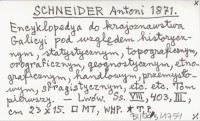 SCHNEIDER Antoni 1871.
Encyklopedya do krajoznawstwa
Galicyi pod względem historycz-
nym, statystycznym, topograficznym,
orograficznym, geognostycznym, etno-
graficznym, handlowym, przemysło-
wym, sfragistycznym, etc. etc. Tom
pierwszy. — Lwów. Ss. VIII, 403, III,
cm 23 x 15. □ MT, WHP. * T. P.